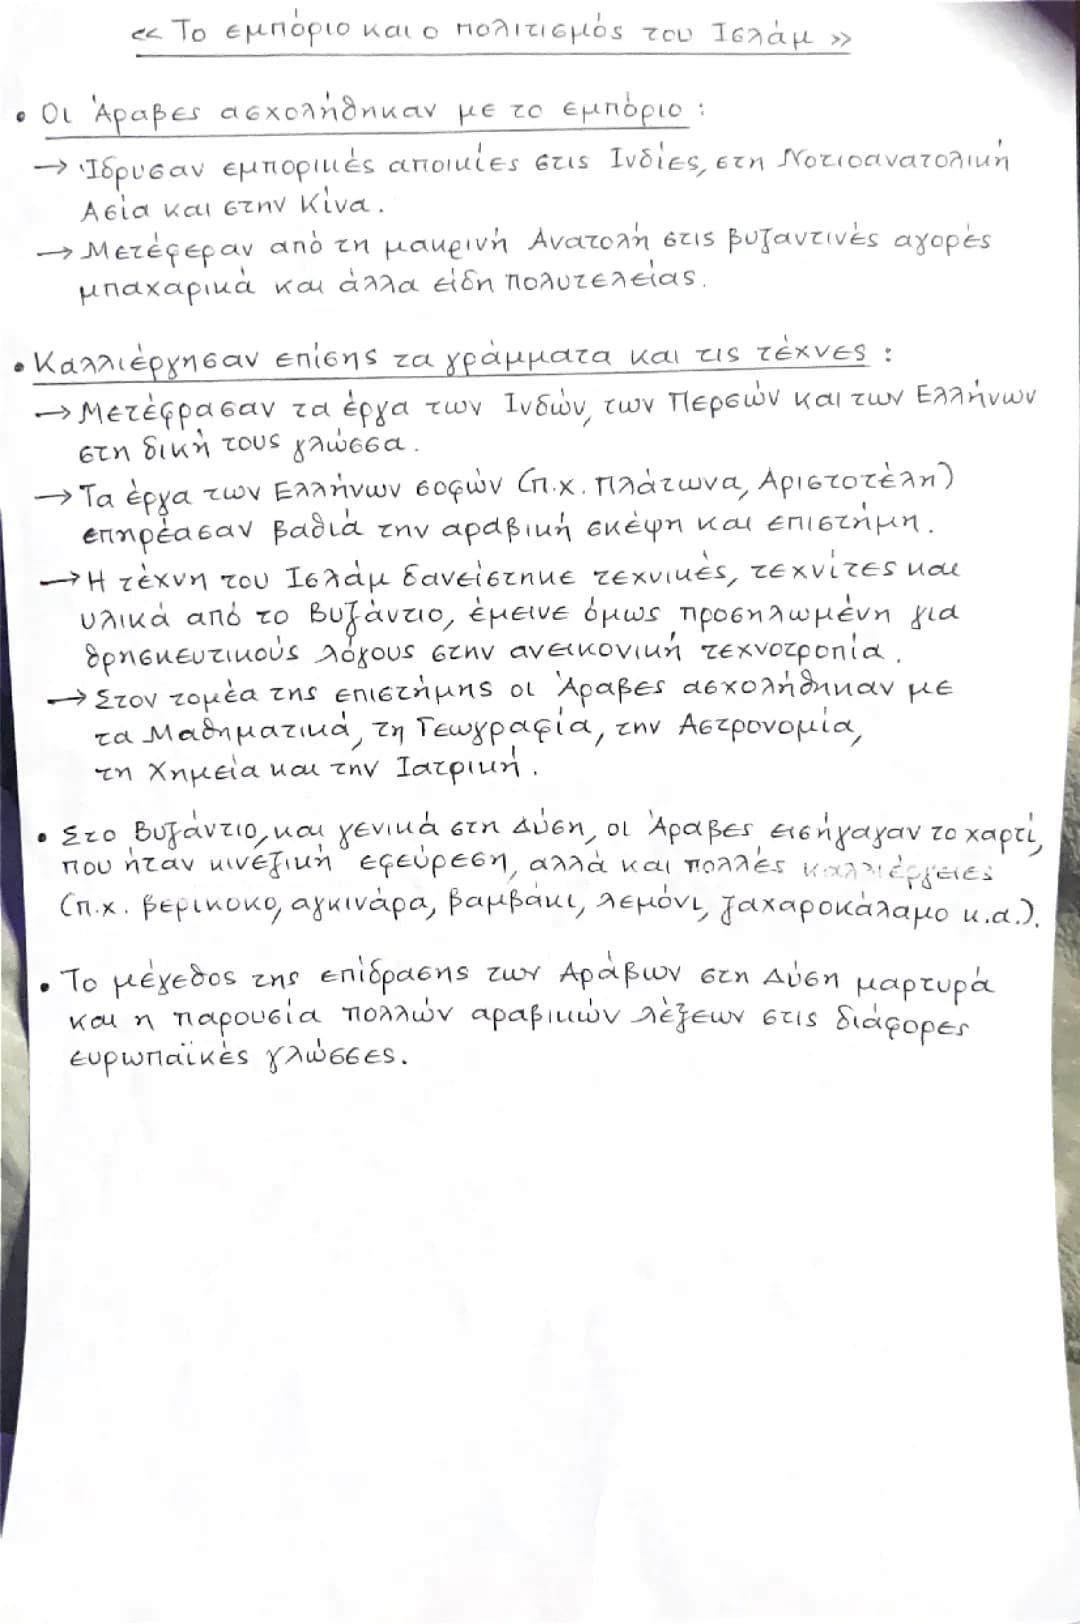 « Το εμπόριο και ο πολιτισμός του Ισλάμ »
• Οι Άραβες ασχολήθηκαν με το εμπόριο :
→ Ίδρυσαν εμπορικές αποικίες στις Ινδίες, στη Νοτιοανατολική
Ασία και στην Κίνα.
→ Μετέφεραν από τη μακρινή Ανατολή στις βυζαντινές αγορές
μπαχαρικά και άλλα είδη πολυτελείας.
• Καλλιέργησαν επίσης τα γράμματα και τις τέχνες :
→ Μετέφρασαν τα έργα των Ινδών, των Περσών και των Ελλήνων
στη δική τους γλώσσα.
→ Τα έργα των Ελλήνων σοφών (π.χ. Πλάτωνα, Αριστοτέλη)
επηρέασαν βαθιά την αραβική σκέψη και επιστήμη.
→ Η τέχνη του Ισλάμ δανείστηκε τεχνικές, τεχνίτες και
υλικά από το Βυζάντιο, έμεινε όμως προσηλωμένη για
θρησκευτικούς λόγους στην ανεικονική τεχνοτροπία.
→ Στον τομέα της επιστήμης οι Άραβες ασχολήθηκαν με
τα Μαθηματικά, τη Γεωγραφία, την Αστρονομία,
τη Χημεία και την Ιατρική.
• Στο Βυζάντιο, και γενικά στη Δύση, οι Άραβες εισήγαγαν το χαρτί,
που ήταν κινέζικη εφεύρεση, αλλά και πολλές καλλιέργειες
(π.χ. βερίκοκο, αγκινάρα, βαμβάκι, λεμόνι, ζαχαροκάλαμο κ.α.).
• Το μέγεθος της επίδρασης των Αράβων στη Δύση μαρτυρά
και η παρουσία πολλών αραβικών λέξεων στις διάφορες
ευρωπαϊκές γλώσσες.